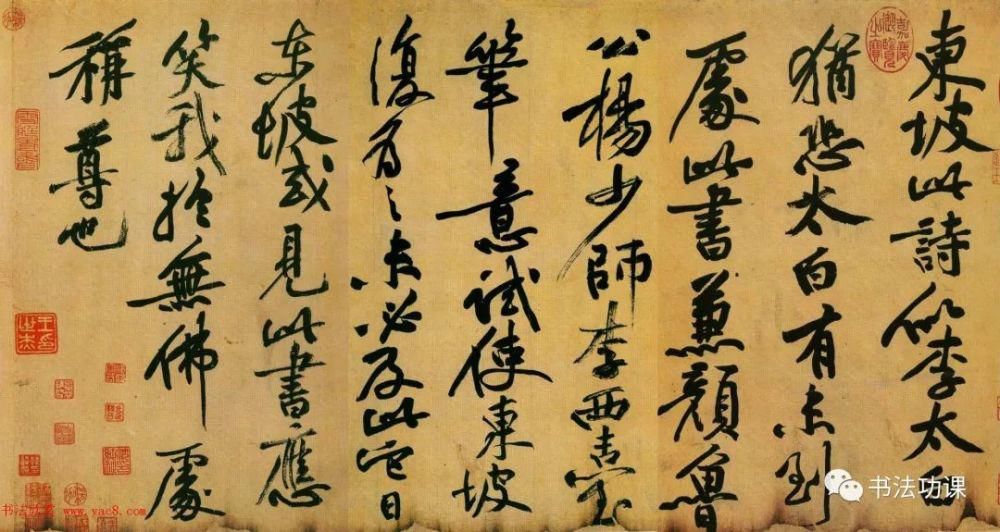 東坡此詩似李太白
猶恐太白有未到
處此書兼顏魯
公楊少師李西臺
筆意試使東坡
復為之未必及此它日
東坡或見此書應
笑我於無佛處
稱尊也
嘉慶御覽之寶
书法功课
书法功夫
www.yac8.com